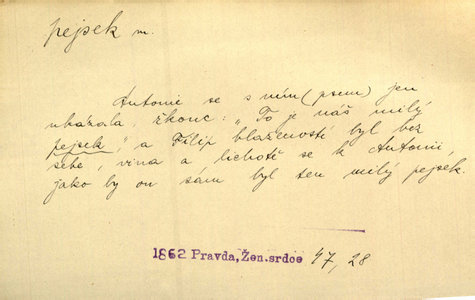 pejsek m.
Antonie se s ním (psem) jen
ukázala, řkouc: „To je náš milý
pejsek,“ a Filip blažeností byl bez
sebe, vina a lichotě se k Antonii,
jako by on sám byl ten milý pejsek.
1862 Pravda, Žen. srdce 47, 28